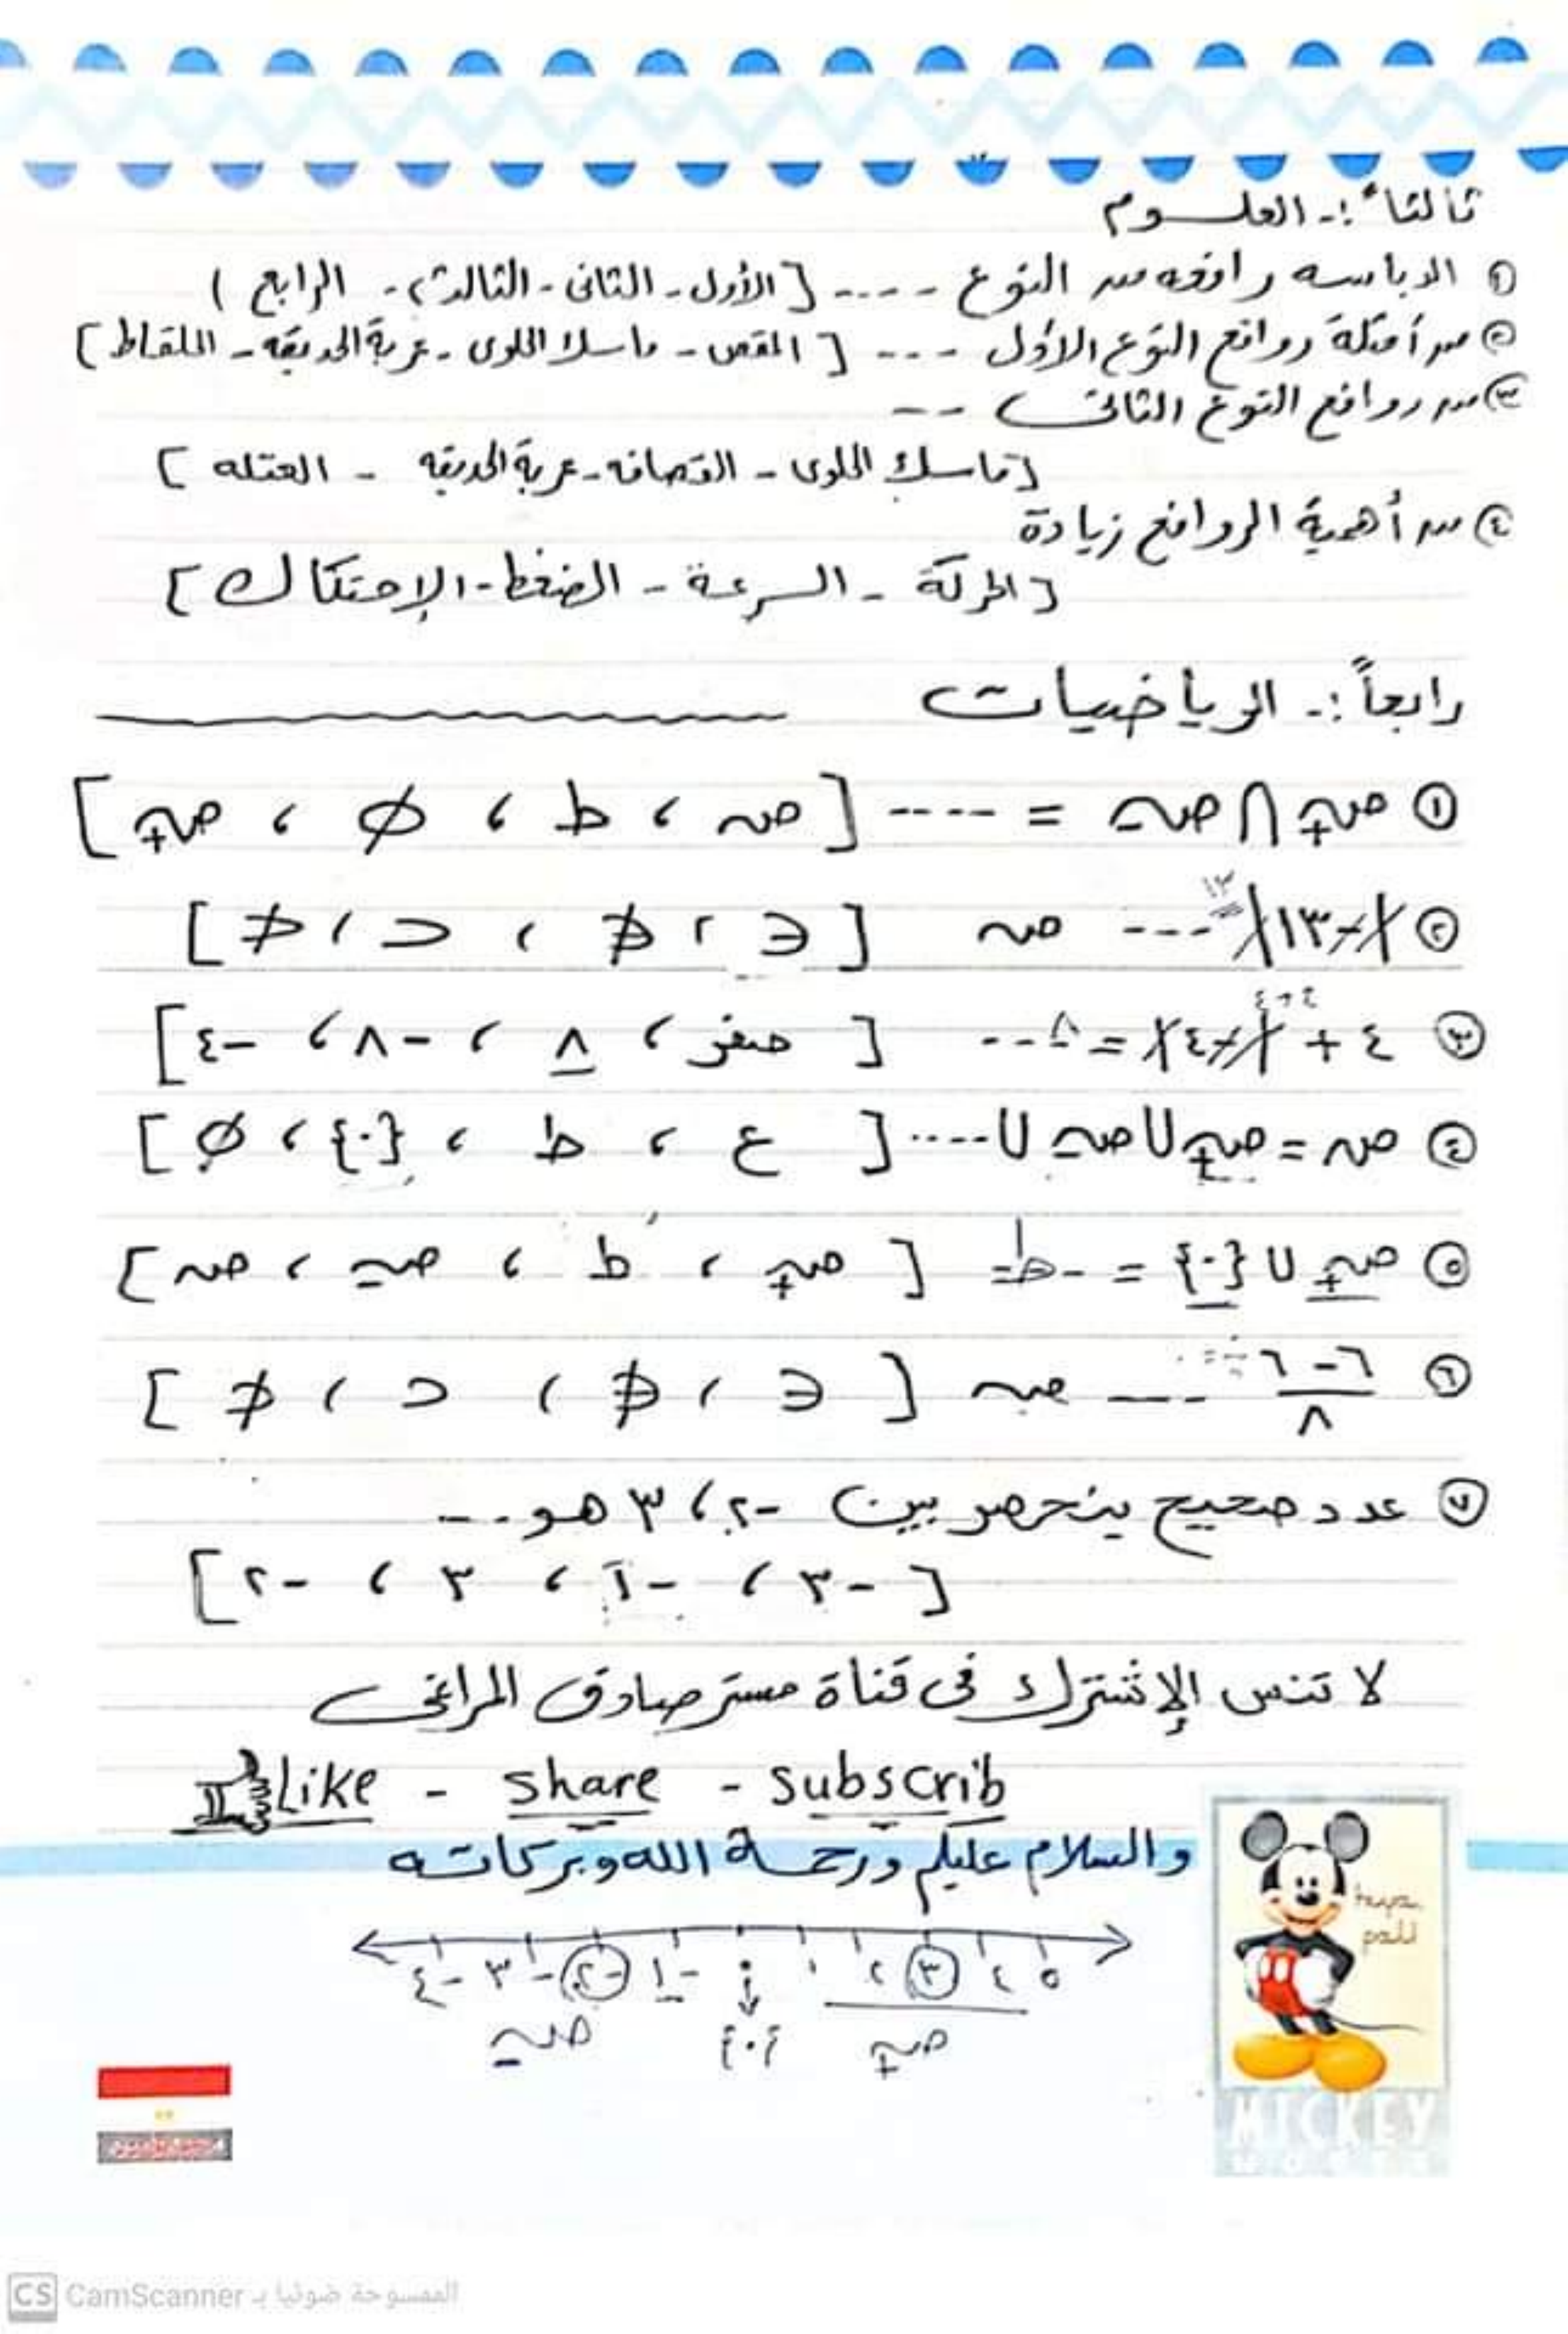 ثالثاً :- العلوم
① الدباسه رافعه من النوع ---- [الأول - الثانى - الثالث - الرابع)
② من أمثلة روافع النوع الأول --- [المقص - ماسك الحلوى - عربة الحديقه - الملقاط]
③ من روافع النوع الثانى --
[ماسك الحلوى - القصافه - عربة الحديقه - العتله]
④ من أهمية الروافع زيادة
[الحركة - السرعة - الضغط - الإحتكاك]
رابعاً :- الرياضيات
① صـ+ ∩ صـ- = ---- [صـ ، ط ، ∅ ، صـ+]
② |-١٣| --- صـ [∈ ، ∉ ، ⊂ ، ⊄]
١٣
③ ٤ + |-٤| = ٨ --- [صفر ، ٨ ، -٨ ، -٤]
٤+٤
④ صـ = صـ+ ∪ صـ- ∪ .... [ع ، ط ، {٠} ، ∅]
⑤ صـ+ ∪ {٠} = -ط- [صـ+ ، ط ، صـ- ، صـ]
⑥ ٦-٦/٨ --- صـ [∈ ، ∉ ، ⊂ ، ⊄]
⑦ عدد صحيح ينحصر بين -٢ ، ٣ هو ---
[-٣ ، -١ ، ٣ ، -٢]
لا تنس الإشترك فى قناة مستر صادق المراغى
Like - Share - Subscrib
والسلام عليكم ورحمة الله وبركاته
-٤ -٣ -٢ -١ ٠ ١ ٢ ٣ ٤ ٥
صـ- {٠} صـ+
MICKEY
CS CamScanner الممسوحة ضوئيا بـ